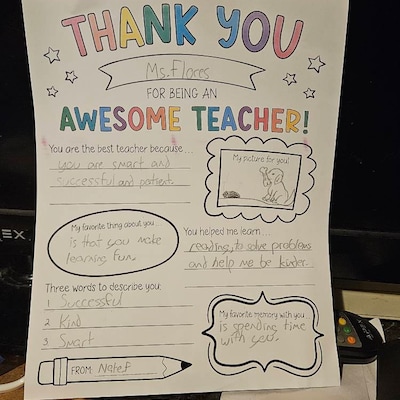 THANK YOU
Ms. Flores
FOR BEING AN
AWESOME TEACHER!
You are the best teacher because...
you are smart and
successful and patient.
My picture for you!
My favorite thing about you...
is that you make
learning fun.
You helped me learn...
reading, to solve problems
and help me be kinder.
Three words to describe you:
1 Successful
2 Kind
3 Smart
My favorite memory with you
is spending time
with you.
FROM: Nate.F
EX